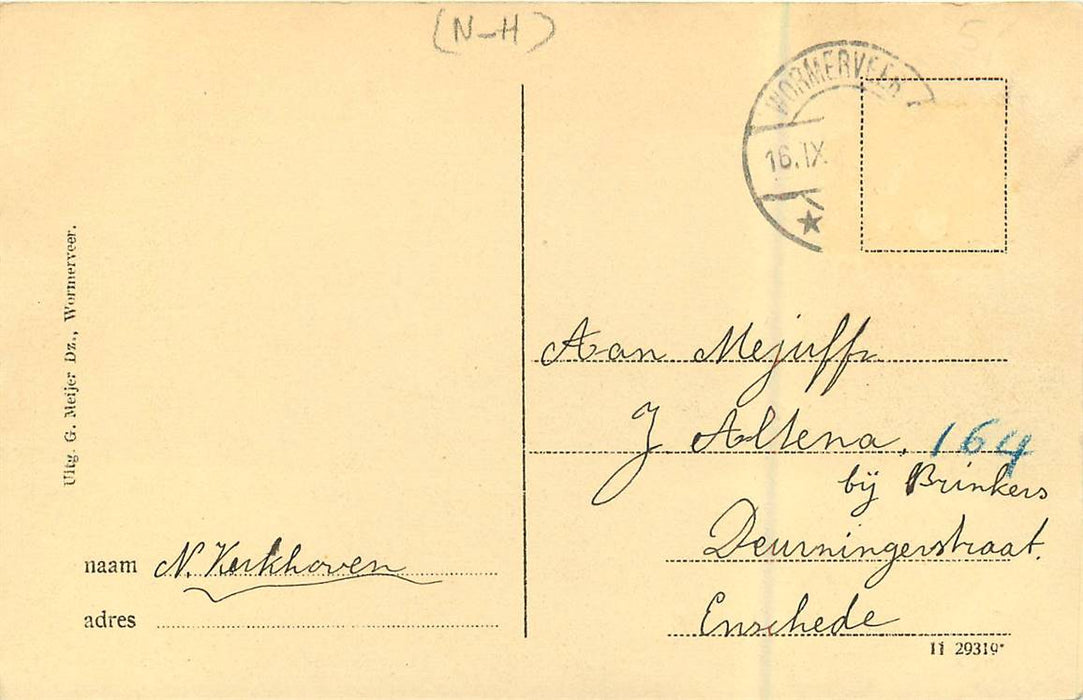 (N-H)
WORMERVEER
16.IX
Uitg. G. Meijer Dz., Wormerveer.
Aan Mejuffr
J. Altena, 164
bij Brinkers
Deurningerstraat.
Enschede
naam N. Kerkhoven
adres
11 29319*